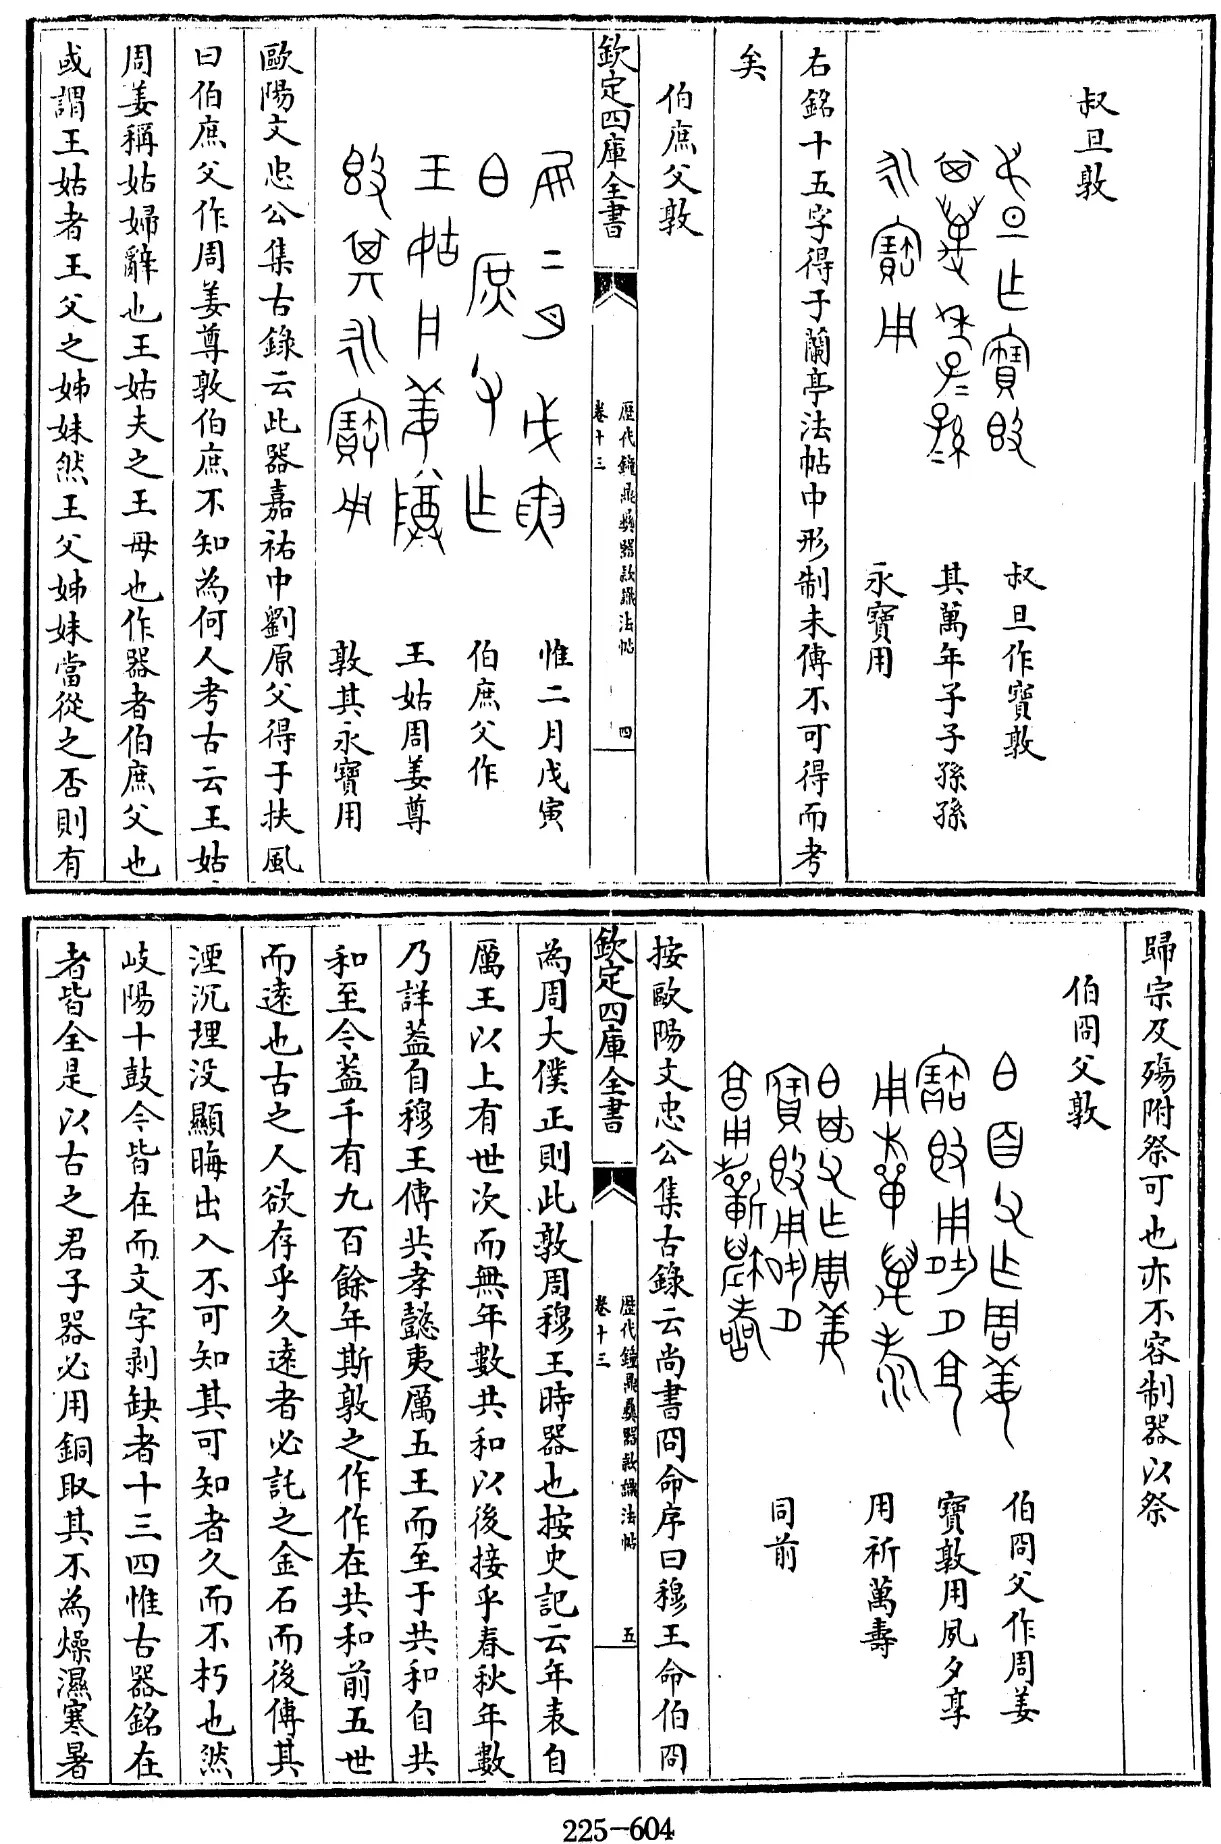 叔旦敦
叔旦作寶敦
其萬年子子孫孫
永寶用
右銘十五字得于蘭亭法帖中形制未傳不可得而考
矣
伯庶父敦
欽定四庫全書
歷代鐘鼎彝器款識法帖
卷十三
四
惟二月戊寅
伯庶父作
王姑周姜尊
敦其永寶用
歐陽文忠公集古錄云此器嘉祐中劉原父得于扶風
曰伯庶父作周姜尊敦伯庶不知為何人考古云王姑
周姜稱姑婦辭也王姑夫之王母也作器者伯庶父也
或謂王姑者王父之姊妹然王父姊妹當從之否則有
歸宗及殤附祭可也亦不容制器以祭
伯冏父敦
伯冏父作周姜
寶敦用夙夕享
用祈萬壽
同前
按歐陽文忠公集古錄云尚書冏命序曰穆王命伯冏
欽定四庫全書
歷代鐘鼎彝器款識法帖
卷十三
五
為周大僕正則此敦周穆王時器也按史記云年表自
厲王以上有世次而無年數共和以後接乎春秋年數
乃詳蓋自穆王傳共孝懿夷厲五王而至于共和自共
和至今蓋千有九百餘年斯敦之作作在共和前五世
而遠也古之人欲存乎久遠者必託之金石而後傳其
湮沉埋沒顯晦出入不可知其可知者久而不朽也然
岐陽十鼓今皆在而文字剥缺者十三四惟古器銘在
者皆全是以古之君子器必用銅取其不為燥濕寒暑
225-604